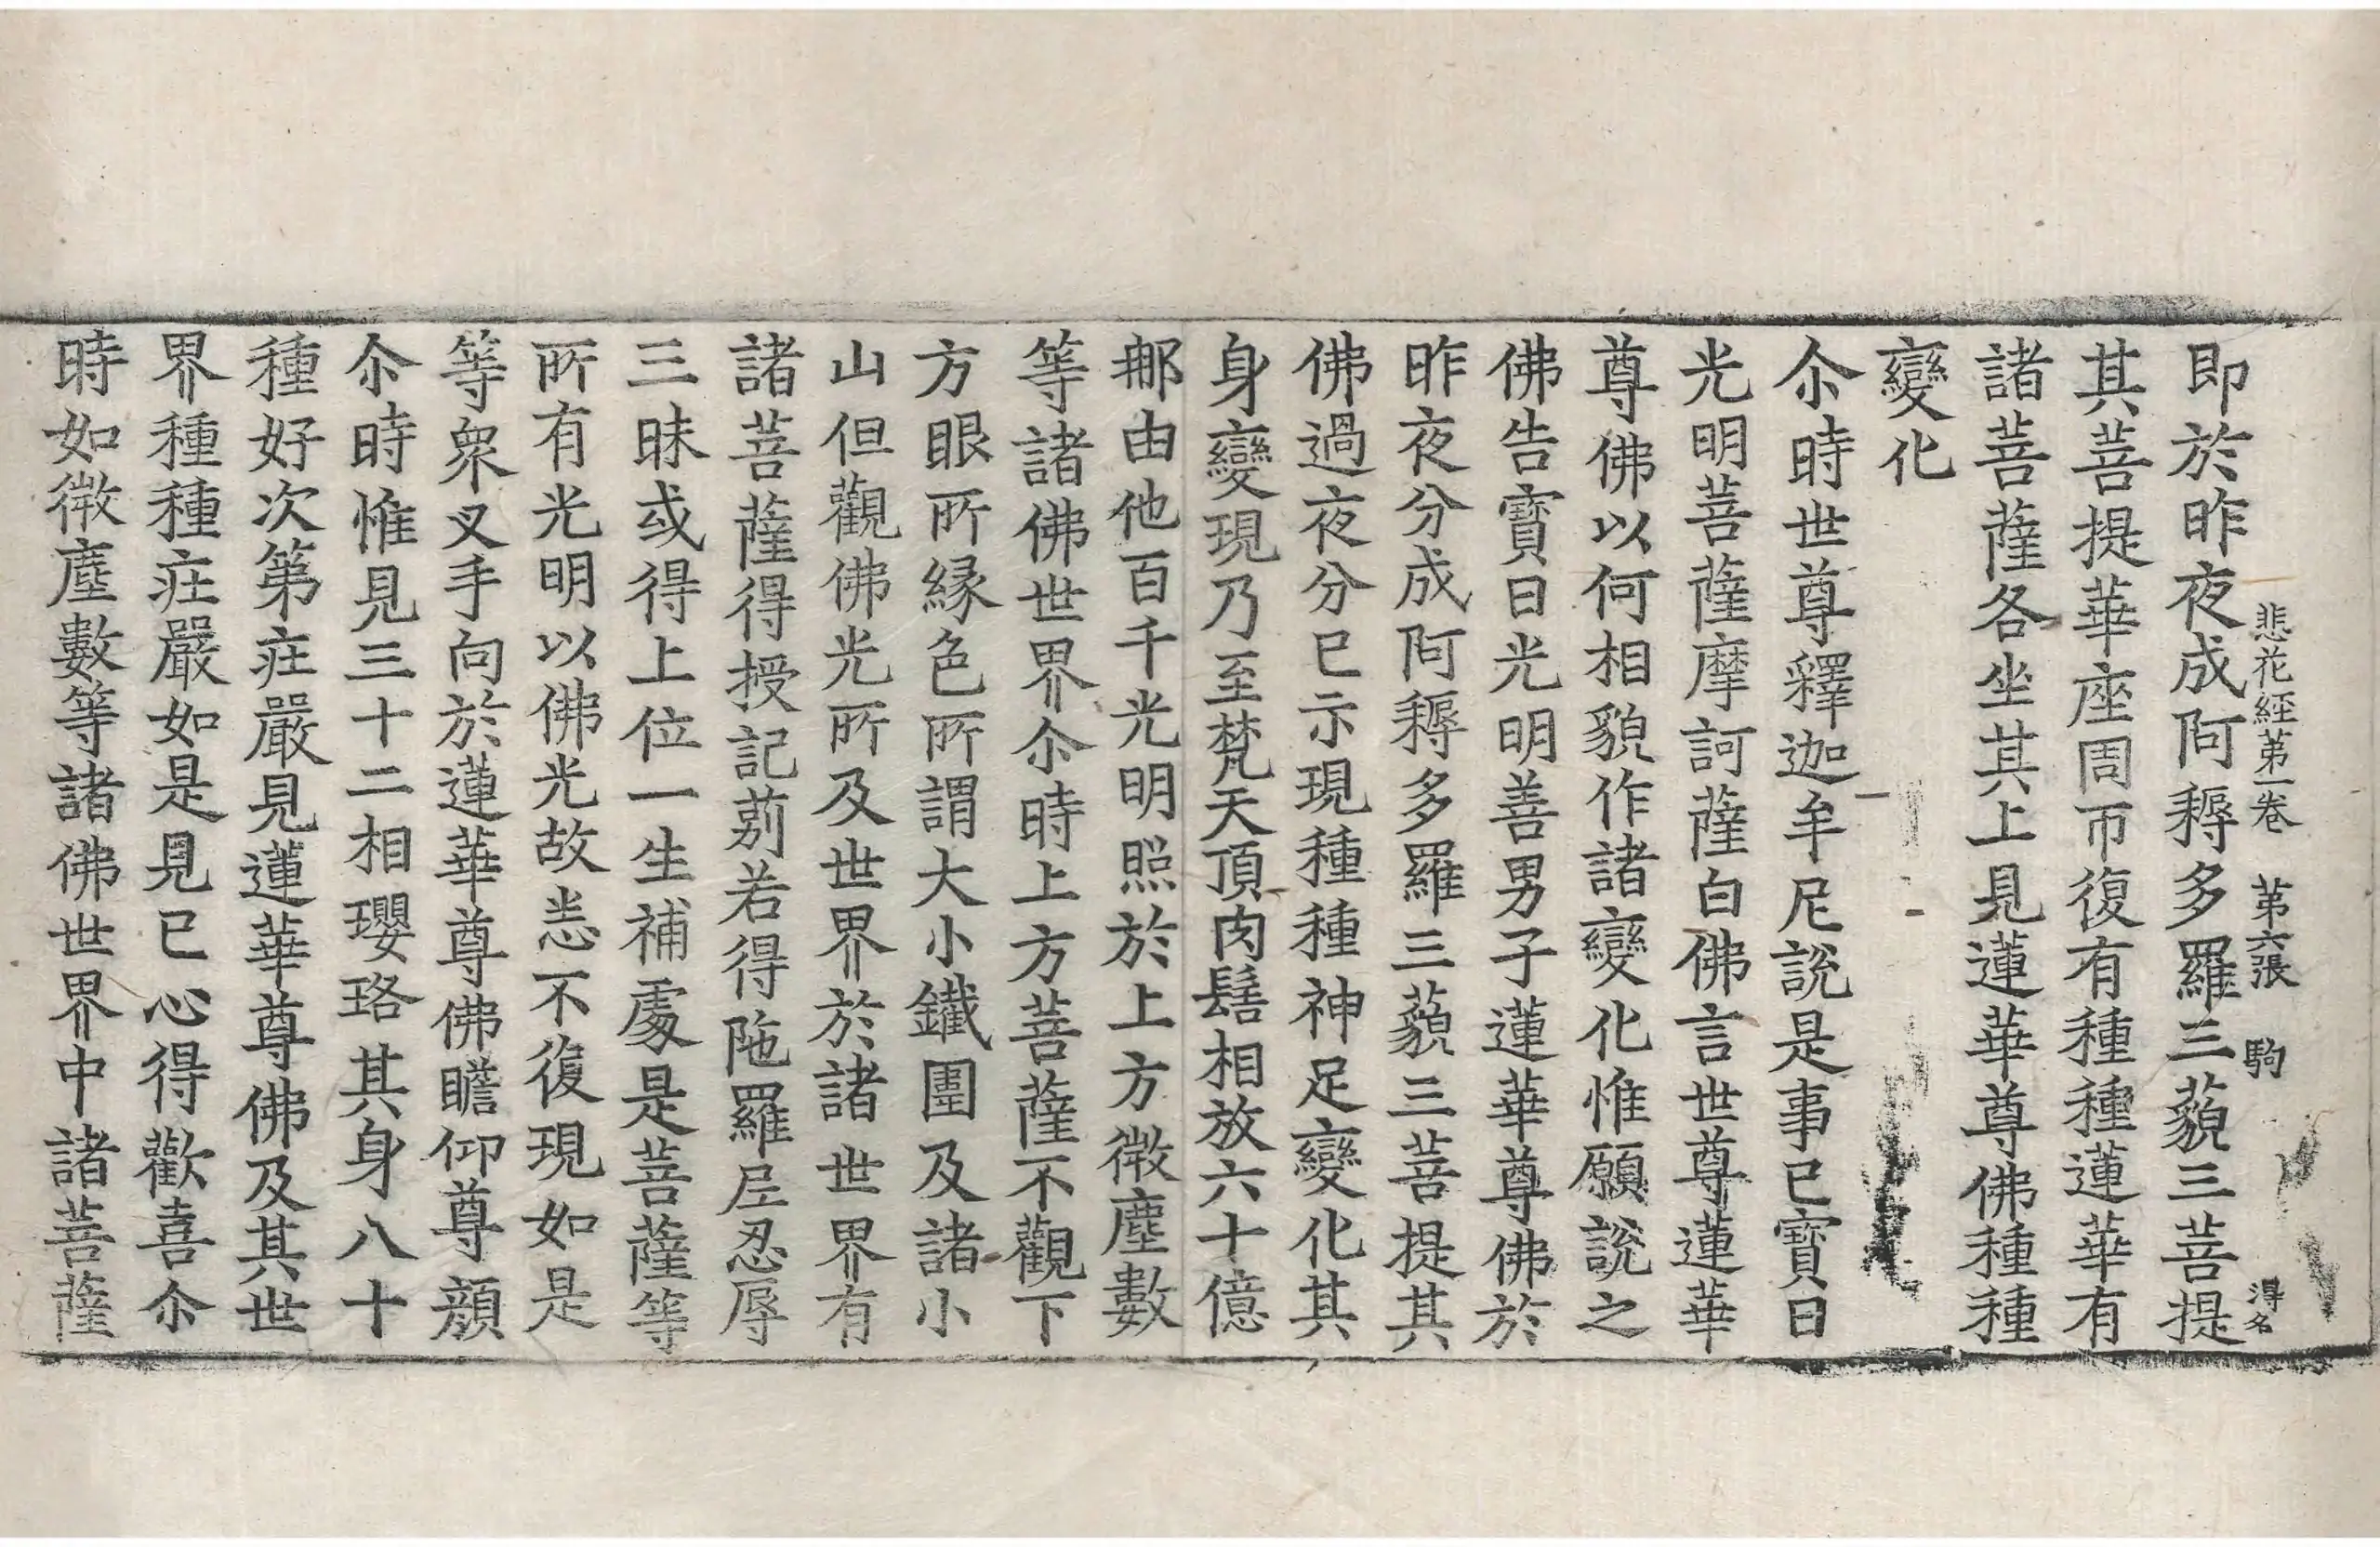 悲花經第一卷　第六張　駒　淂名
即於昨夜成阿耨多羅三藐三菩提
其菩提華座周帀復有種種蓮華有
諸菩薩各坐其上見蓮華尊佛種種
變化
尒時世尊釋迦牟尼說是事已寶日
光明菩薩摩訶薩白佛言世尊蓮華
尊佛以何相貌作諸變化惟願說之
佛告寶日光明善男子蓮華尊佛於
昨夜分成阿耨多羅三藐三菩提其
佛過夜分已示現種種神足變化其
身變現乃至梵天頂肉髻相放六十億
𨚗由他百千光明照於上方微塵數
等諸佛世界尒時上方菩薩不觀下
方眼所緣色所謂大小鐵圍及諸小
山但觀佛光所及世界於諸世界有
諸菩薩得授記莂若得陁羅尼忍辱
三昧或得上位一生補處是菩薩等
所有光明以佛光故悉不復現如是
等衆叉手向於蓮華尊佛瞻仰尊顏
尒時惟見三十二相瓔珞其身八十
種好次第莊嚴見蓮華尊佛及其世
界種種莊嚴如是見已心得歡喜尒
時如微塵數等諸佛世界中諸菩薩